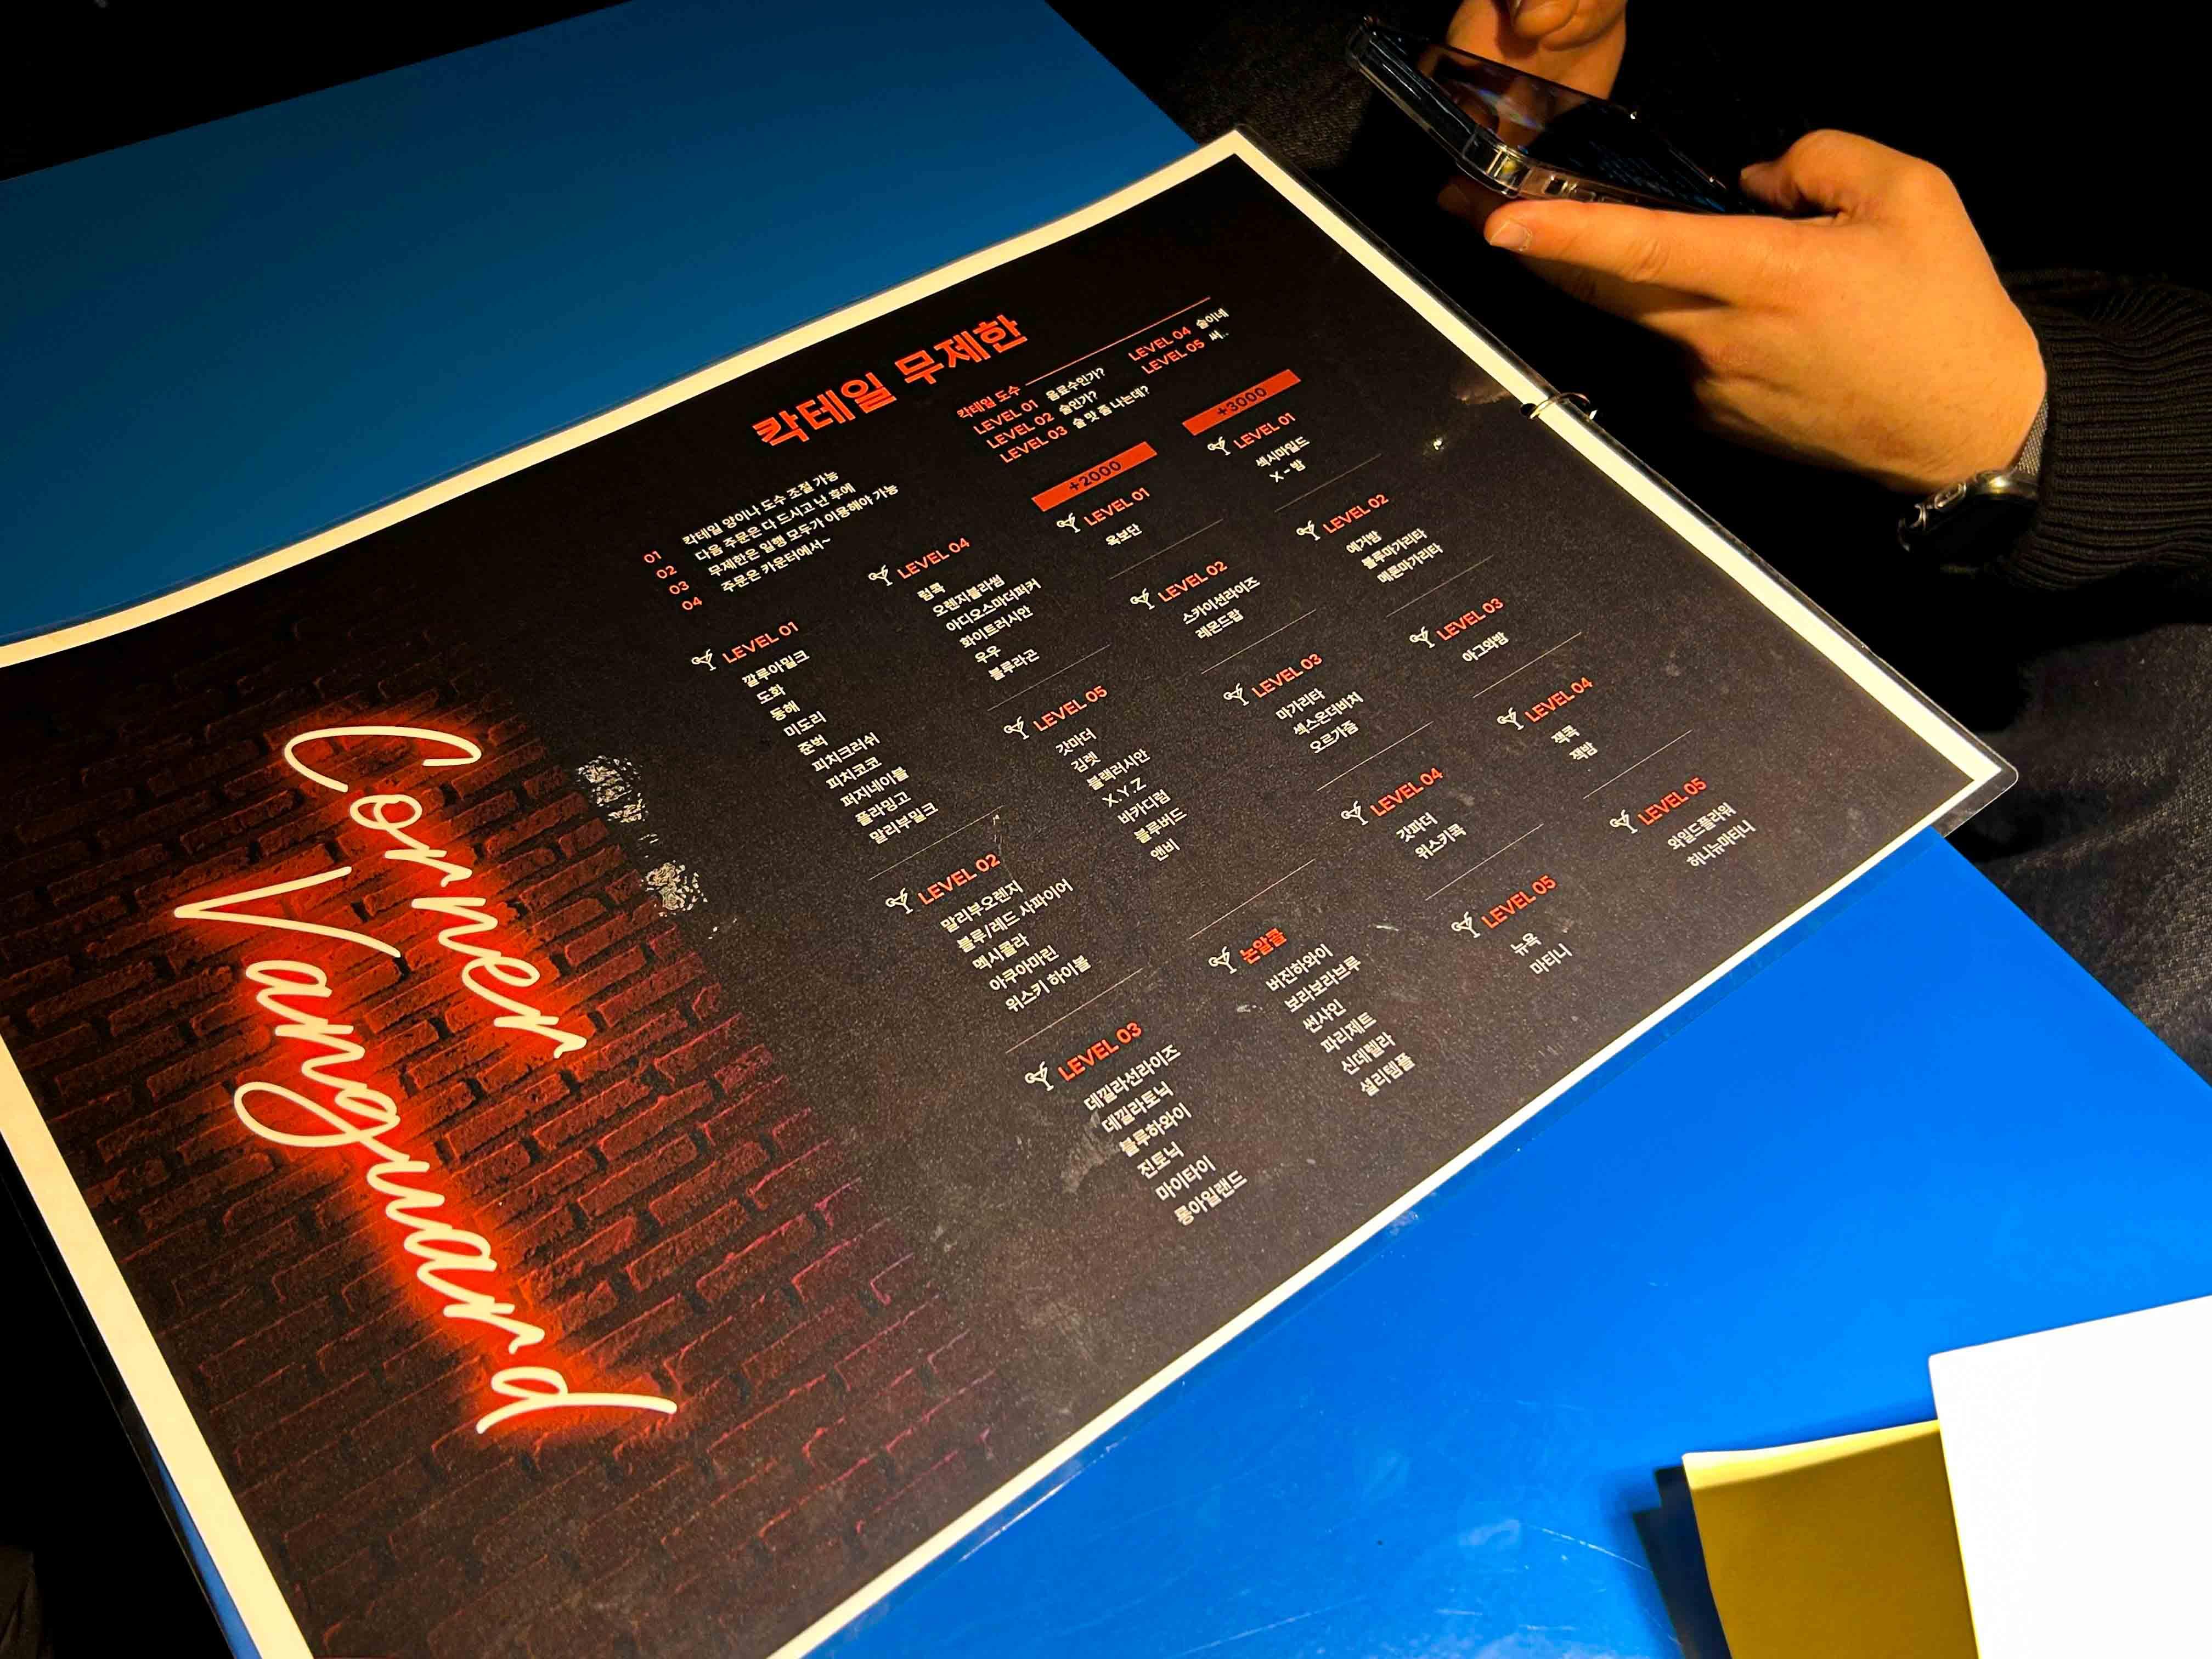 Corner
Vanguard
칵테일 무제한
01 칵테일 양이나 도수 조절 가능
02 다음 주문은 다 드시고 난 후에
03 무제한은 일행 모두가 이용해야 가능
04 주문은 카운터에서~
칵테일 도수
LEVEL 01 음료수인가?
LEVEL 02 술인가?
LEVEL 03 술 맛 좀 나는데?
LEVEL 04 술이네
LEVEL 05 써..
LEVEL 01
깔루아밀크
도화
동해
미도리
준벅
피치크러쉬
피치코코
퍼지네이블
플라밍고
말리부밀크
LEVEL 02
말리부오렌지
블루/레드 사파이어
멕시콜라
아쿠아마린
위스키 하이볼
LEVEL 03
데낄라선라이즈
데낄라토닉
블루하와이
진토닉
마이타이
롱아일랜드
LEVEL 04
럼콕
오렌지블라썸
아디오스마더퍼커
화이트러시안
우우
블루라군
LEVEL 05
갓마더
김렛
블랙러시안
X.Y.Z
바카디럼
블루버드
앤비
논알콜
버진하와이
보라보라브루
썬샤인
파리제트
신데렐라
셜리템플
+2000
LEVEL 01
옥보단
LEVEL 02
스카이선라이즈
레몬드랍
LEVEL 03
마가리타
섹스온더비치
오르가즘
LEVEL 04
갓파더
위스키콕
LEVEL 05
뉴욕
마티니
+3000
LEVEL 01
섹시마일드
X - 밤
LEVEL 02
예거밤
블루마가리타
메론마가리타
LEVEL 03
아그와밤
LEVEL 04
잭콕
잭밤
LEVEL 05
와일드플라워
허니뉴마티니